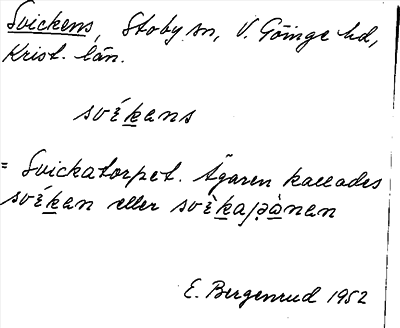 Svickens, Stoby sn, V. Göinge hd,
Krist. län.
své̱kans
= Svickatorpet. Ägaren kallades
své̱kan eller
E. Bergenrud 1952